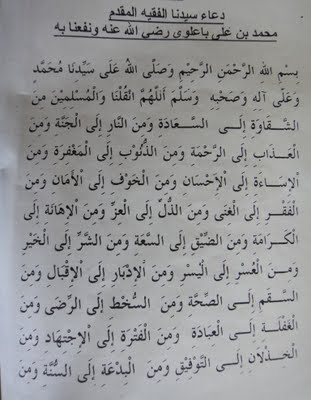 دعاء سيدنا الفقيه المقدم
محمد بن علي باعلوي رضي الله عنه ونفعنا به
بِسْمِ اللهِ الرَّحْمَنِ الرَّحِيْمِ وَصَلَّى اللهُ عَلَى سَيِّدِنَا مُحَمَّدٍ
وَعَلَى آلِهِ وَصَحْبِهِ وَسَلَّمَ اَللَّهُمَّ انْقُلْنَا وَالْمُسْلِمِيْنَ مِنَ
الشَّقَاوَةِ إِلَى السَّعَادَةِ وَمِنَ النَّارِ إِلَى الْجَنَّةِ وَمِنَ
الْعَذَابِ إِلَى الرَّحْمَةِ وَمِنَ الذُّنُوْبِ إِلَى الْمَغْفِرَةِ وَمِنَ
الْإِسَاءَةِ إِلَى الْإِحْسَانِ وَمِنَ الْخَوْفِ إِلَى الْأَمَانِ وَمِنَ
الْفَقْرِ إِلَى الْغِنَى وَمِنَ الذُّلِّ إِلَى الْعِزِّ وَمِنَ الْإِهَانَةِ إِلَى
الْكَرَامَةِ وَمِنَ الضِّيْقِ إِلَى السَّعَةِ وَمِنَ الشَّرِّ إِلَى الْخَيْرِ
وَمِنَ الْعُسْرِ إِلَى الْيُسْرِ وَمِنَ الْإِدْبَارِ إِلَى الْإِقْبَالِ وَمِنَ
السَّقَمِ إِلَى الصِّحَّةِ وَمِنَ السُّخْطِ إِلَى الرِّضَى وَمِنَ
الْغَفْلَةِ إِلَى الْعِبَادَةِ وَمِنَ الْفَتْرَةِ إِلَى الْاِجْتِهَادِ وَمِنَ
الْخِذْلَانِ إِلَى التَّوْفِيْقِ وَمِنَ الْبِدْعَةِ إِلَى السُّنَّةِ وَمِنَ